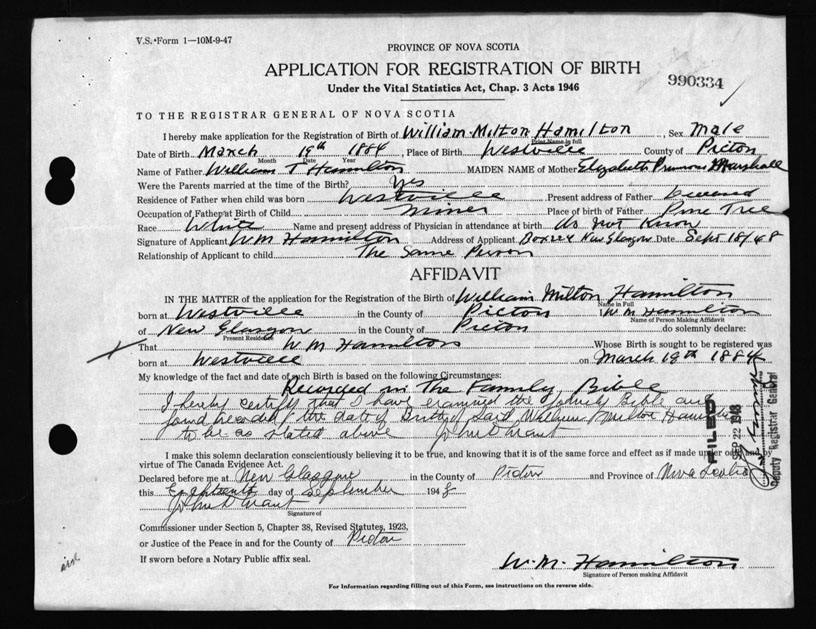 V.S. Form 1—10M-9-47
PROVINCE OF NOVA SCOTIA
APPLICATION FOR REGISTRATION OF BIRTH
990334
Under the Vital Statistics Act, Chap. 3 Acts 1946
TO THE REGISTRAR GENERAL OF NOVA SCOTIA
I hereby make application for the Registration of Birth of William Milton Hamilton, Sex Male
Print Name in full
Date of Birth March 19th 1884 Place of Birth Westville County of Picton
Month Date Year
Name of Father William T Hamilton MAIDEN NAME of Mother Elizabeth Marshall
Were the Parents married at the time of Birth? Yes
Residence of Father when child was born Westville Present address of Father
Occupation of Father at Birth of Child Miner Place of birth of Father Pine Tree
Race White Name and present address of Physician in attendance at birth do not Know
Signature of Applicant W.M Hamilton Address of Applicant New Glasgow Date Sept 18/48
Relationship of Applicant to child The Same Person
AFFIDAVIT
IN THE MATTER of the application for the Registration of the Birth of William Milton Hamilton
Name in Full
born at Westville in the County of Picton W M Hamilton
Name of Person Making Affidavit
of New Glasgow in the County of Picton do solemnly declare:
Present Residence
That W M Hamilton Whose Birth is sought to be registered was
born at Westville on March 19th 1884
My knowledge of the fact and date of such Birth is based on the following Circumstances:
Recorded in The Family Bible
I hereby certify that I have examined the family Bible and
found recorded the date of Birth of said William Milton Hamilton
to be as stated above John D Grant
FILED
SEP 22 1948
Deputy Registrar General
I make this solemn declaration conscientiously believing it to be true, and knowing that it is of the same force and effect as if made under oath and by
virtue of The Canada Evidence Act.
Declared before me at New Glasgow in the County of Picton and Province of Nova Scotia
this Eighteenth day of September 1948
John D Grant
Signature of
Commissioner under Section 5, Chapter 38, Revised Statutes, 1923,
or Justice of the Peace in and for the County of Picton
If sworn before a Notary Public affix seal.
W. M. Hamilton
Signature of Person making Affidavit
For Information regarding filling out of this Form, see instructions on the reverse side.